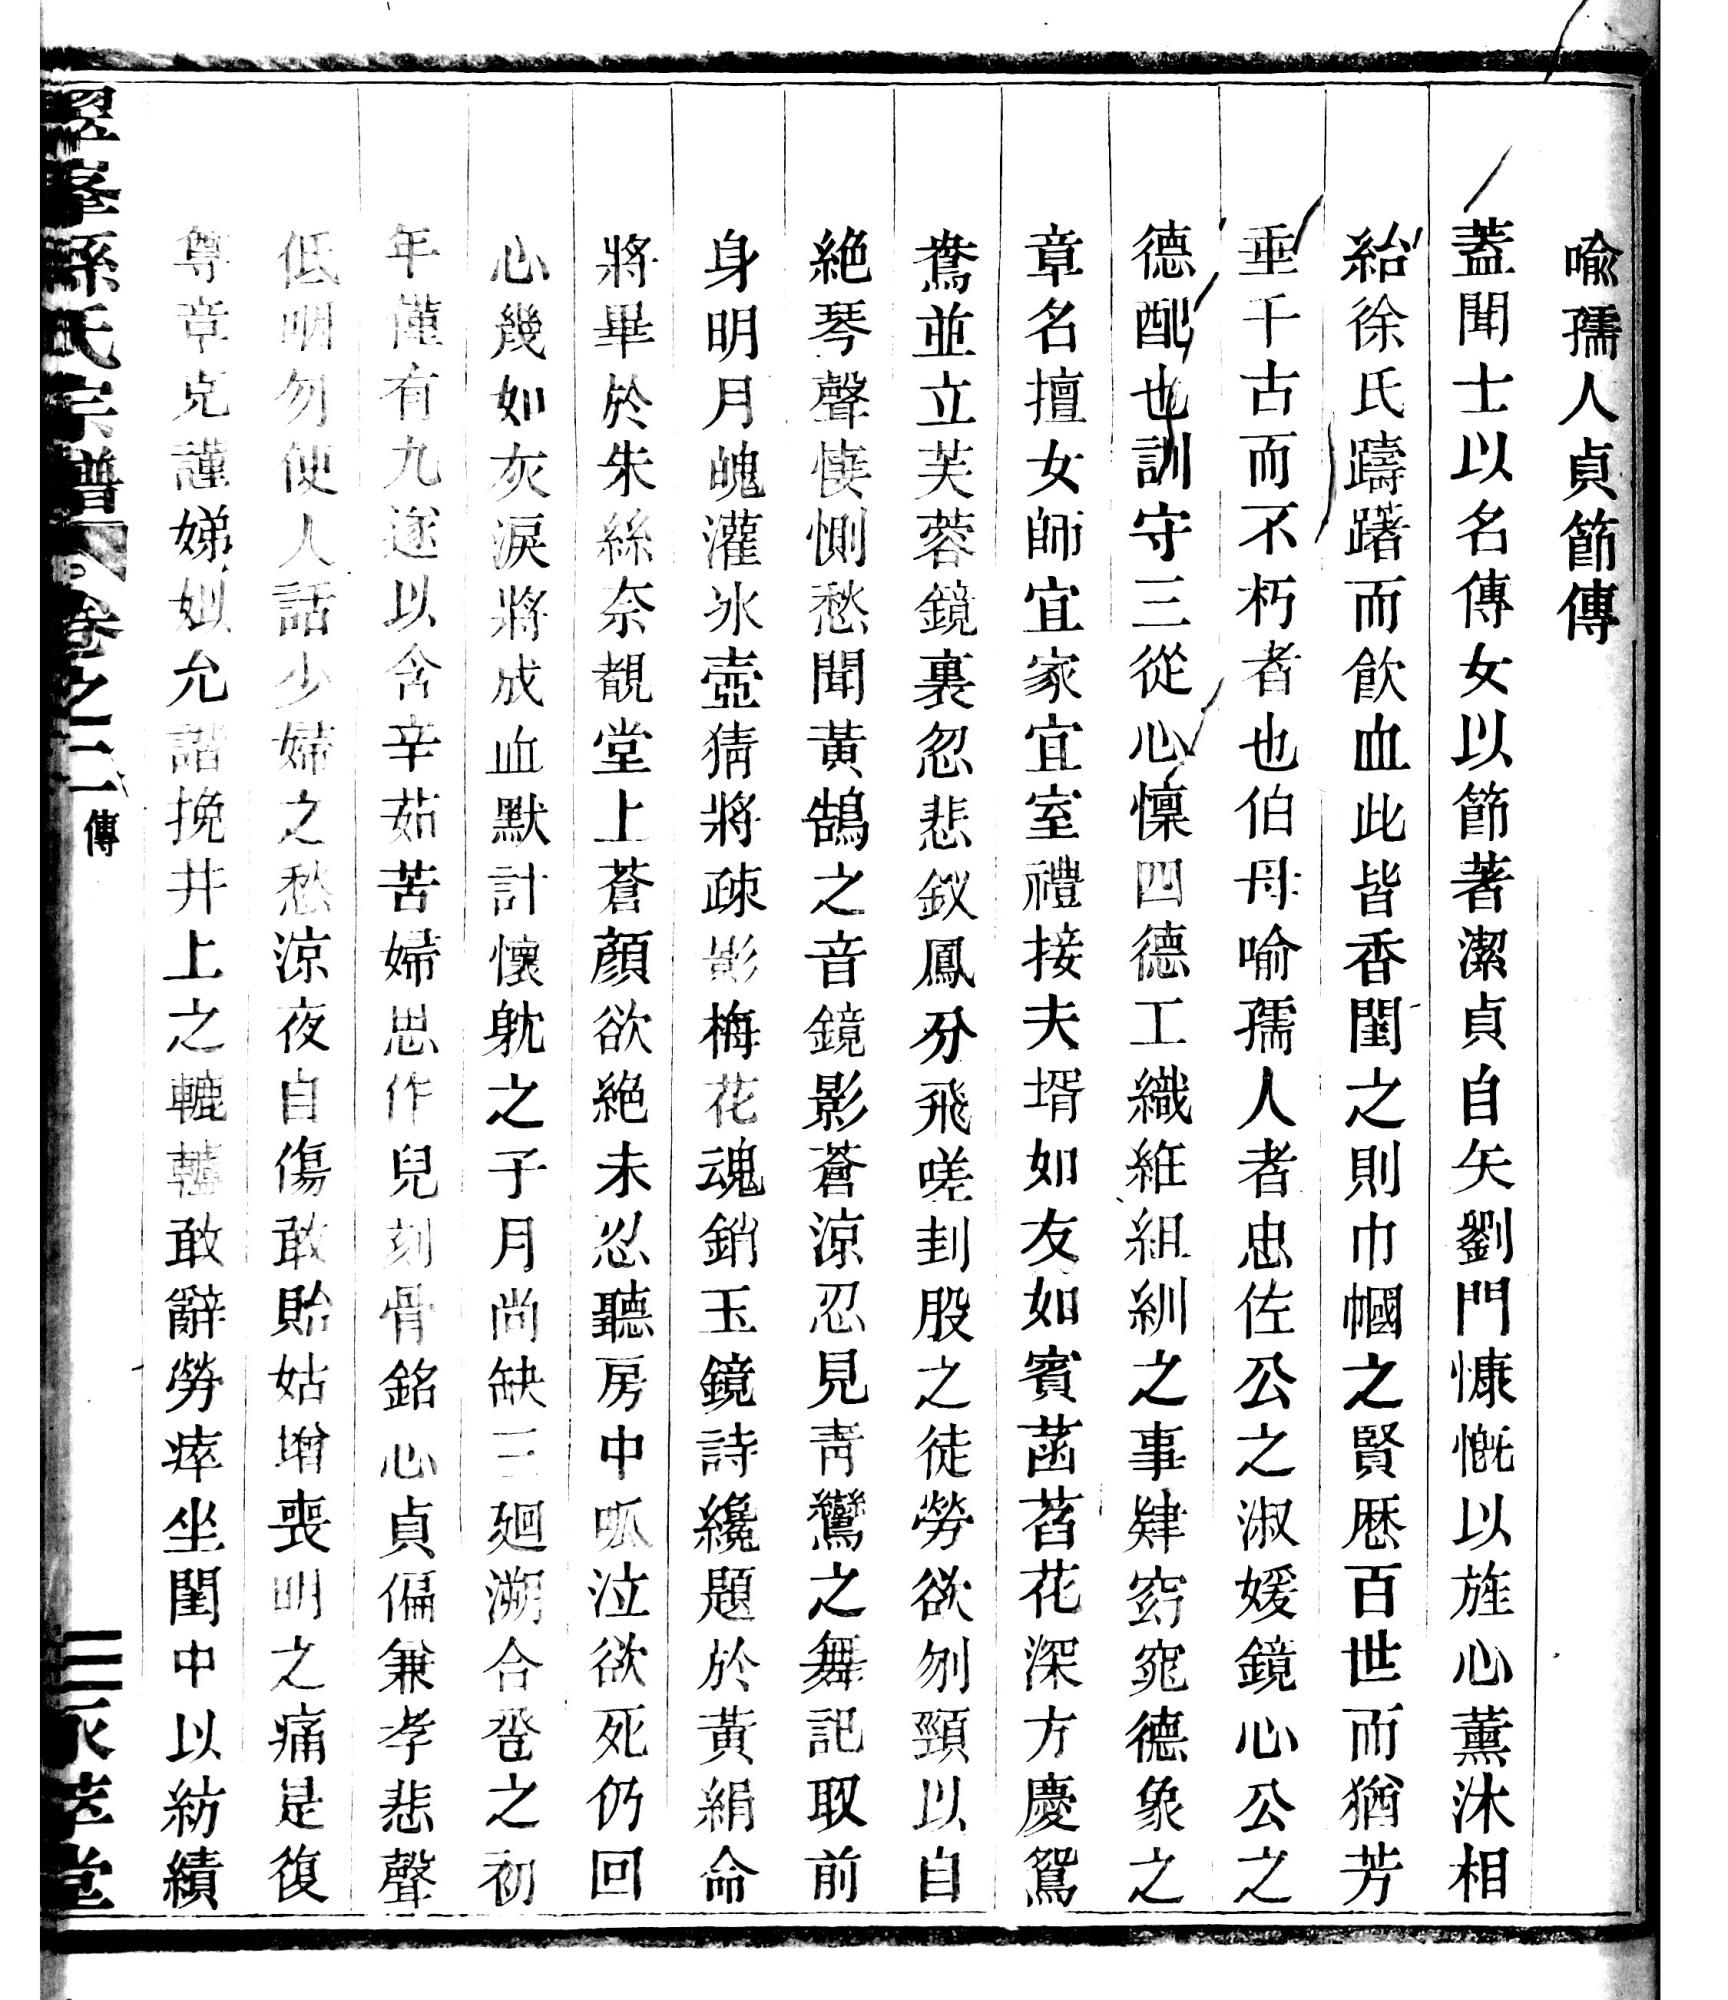 喩孺人貞節傳
蓋聞士以名傳女以節著潔貞自矢劉門慷慨以旌心薰沐相
紿徐氏躊躇而飲血此皆香閨之則巾幗之賢厯百世而猶芳
垂千古而不朽者也伯母喻孺人者忠佐公之淑媛鏡心公之
德配也訓守三從心懍四德工織絍組紃之事肄窈窕德象之
章名擅女師宜家宜室禮接夫壻如友如賓菡萏花深方慶鴛
鴦並立芙蓉鏡裏忽悲釵鳳分飛嗟刲股之徒勞欲刎頸以自
絶琴聲悽惻愁聞黃鵠之音鏡影蒼涼忍見青鸞之舞記取前
身明月魄灌氷壺猜將疎影梅花魂銷玉鏡詩纔題於黃絹命
將畢於朱絲奈覩堂上蒼顔欲絶未忍聽房中呱泣欲死仍回
心幾如灰淚將成血默計懷躭之子月尚缺三廻溯合卺之初
年僅有九遂以含辛茹苦婦思作兒刻骨銘心貞偏兼孝悲聲
低咽勿使人話少婦之愁涼夜自傷敢貽姑增喪明之痛是復
尊章克謹娣姒允諧挽井上之轆轤敢辭勞瘁坐閨中以紡績
翠峯孫氏宗譜 卷之二 傳 三 永萃堂